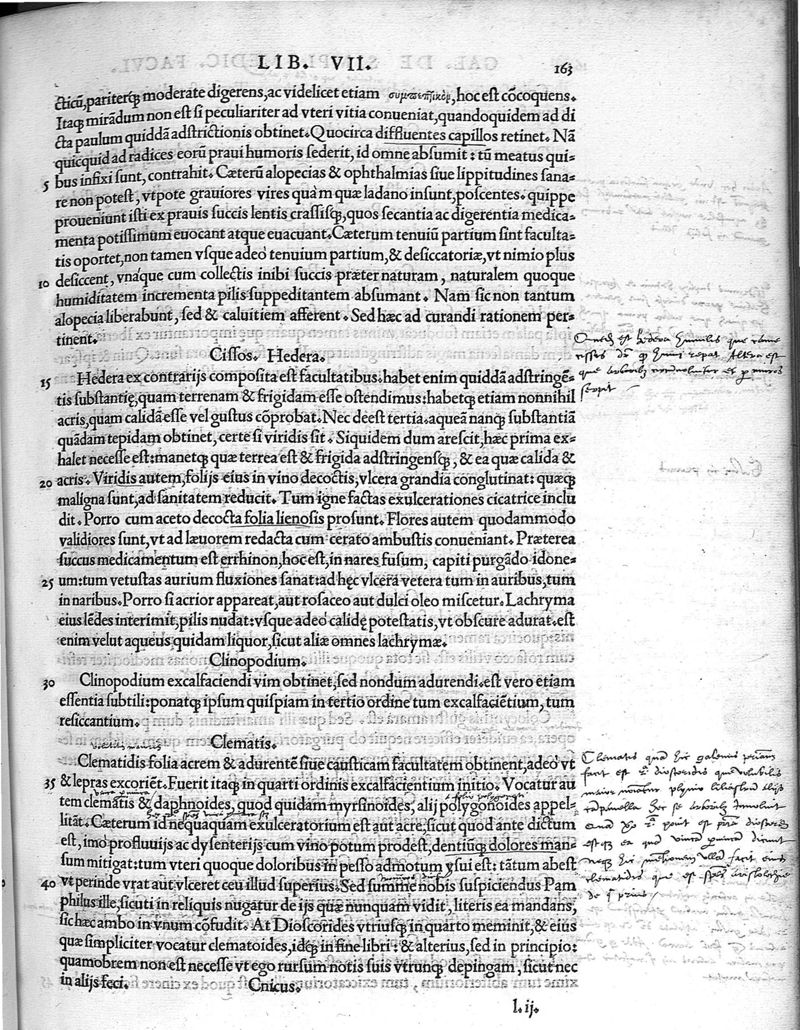 LIB. VII. 163
cticũ, pariterq́; moderate digerens, ac videlicet etiam συμπεπτικὸν, hoc est cõcoquens.
Itaq; mirãdum non est si peculiariter ad vteri vitia conueniat, quandoquidem ad di
cta paulum quiddã adstrictionis obtinet. Quocirca diffluentes capillos retinet. Nã
quicquid ad radices eorũ praui humoris sederit, id omne absumit: tũ meatus qui-
5 bus infixi sunt, contrahit. Cæterũ alopecias & ophthalmias siue lippitudines sana-
re non potest, vtpote grauiores vires quàm quæ ladano insunt, poscentes. quippe
proueniunt isti ex prauis succis lentis crassisq́;, quos secantia ac digerentia medica-
menta potissimum euocant atque euacuant. Cæterum tenuiũ partium sint faculta-
tis oportet, non tamen vsque adeò tenuium partium, & desiccatoriæ, vt nimio plus
10 desiccent, vnáque cum collectis inibi succis præter naturam, naturalem quoque
humiditatem incrementa pilis suppeditantem absumant. Nam sic non tantum
alopecia liberabunt, sed & caluitiem afferent. Sed hæc ad curandi rationem per-
tinent.
Cissos. Hedera.
15 Hedera ex contrarijs composita est facultatibus. habet enim quiddã adstringẽ-
tis substantiæ, quam terrenam & frigidam esse ostendimus: habetq́; etiam nonnihil
acris, quam calidã esse vel gustus cõprobat. Nec deest tertia. aqueã nanq; substantiã
quãdam tepidam obtinet, certe si viridis sit. Siquidem dum arescit, hæc prima ex-
halet necesse est: manetq́; quæ terrea est & frigida adstringensq́;, & ea quæ calida &
20 acris. Viridis autem, folijs eius in vino decoctis, vlcera grandia conglutinat: quæq́;
maligna sunt, ad sanitatem reducit. Tum igne factas exulcerationes cicatrice inclu
dit. Porro cum aceto decocta folia lienosis prosunt. Flores autem quodammodo
validiores sunt, vt ad læuorem redacta cum cerato ambustis conueniant. Præterea
succus medicamentum est errhinon, hoc est, in nares fusum, capiti purgãdo idone-
25 um: tum vetustas aurium fluxiones sanat: ad hęc vlcera vetera tum in auribus, tum
in naribus. Porro si acrior appareat, aut rosaceo aut dulci oleo miscetur. Lachryma
eius lẽdes interimit, pilis nudat: vsque adeo calidę potestatis, vt obscure adurat. est
enim velut aqueus quidam liquor, sicut aliæ omnes lachrymæ.
Clinopodium.
30 Clinopodium excalfaciendi vim obtinet, sed nondum adurendi. est vero etiam
essentia subtili: ponatq; ipsum quispiam in tertio ordine tum excalfaciẽtium, tum
resiccantium.
Clematis.
Clematidis folia acrem & adurentẽ siue causticam facultatem obtinent, adeò vt
35 & lepras excoriẽt. Fuerit itaq; in quarti ordinis excalfacientium initio. Vocatur au
tem clematis & daphnoides, quod quidam myrsinoides, alij polygonoides appel-
litãt. Cæterum id nequaquam exulceratorium est aut acre, sicut quod ante dictum
est, imo profluuijs ac dysenterijs cum vino potum prodest, dentiumq́; dolores man-
sum mitigat: tum vteri quoque doloribus in pesso admotum vsui est: tãtum abest
40 vt perinde vrat aut vlceret ceu illud superius. Sed summe nobis suspiciendus Pam
philus ille, sicuti in reliquis nugatur de ijs quæ nunquam vidit, literis ea mandans,
sic hæc ambo in vnum cõfudit. At Dioscorides vtriusq; in quarto meminit, & eius
quæ simpliciter vocatur clematoides, idq́; in fine libri: & alterius, sed in principio:
quamobrem non est necesse vt ego rursum notis suis vtrunq; depingam, sicut nec
in alijs feci.
Cnicus.
l. ij.